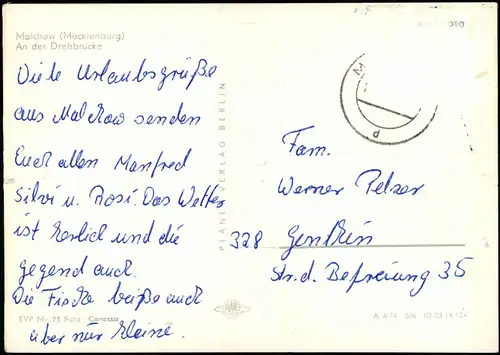 Malchow (Mecklenburg)
An der Drehbrücke
Viele Urlaubsgrüße
aus Malchow senden
Euch allen Manfred
Silvi u. Rosi. Das Wetter
ist herlich und die
gegend auch.
Die Fische beiße auch
aber nur kleine.
EVP M -,25 Foto: Corazza
PLANET-VERLAG BERLIN
PLANET
M
P
Fam.
Werner Pelzer
328 Genthin
Str. d. Befreiung 35
A 4/74 606 02 03 14 124